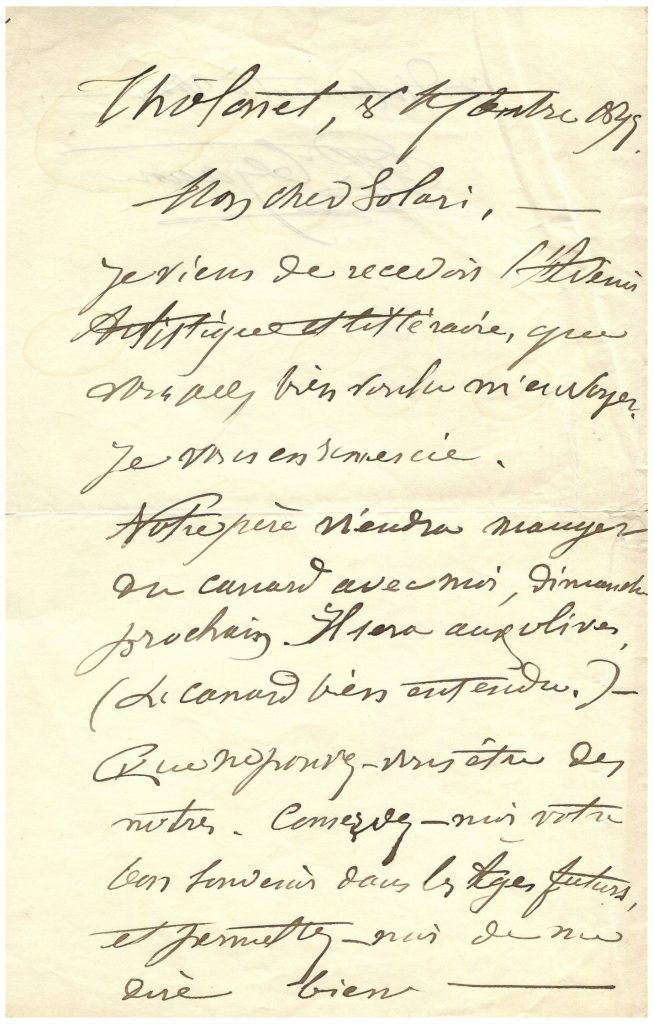 Tholonet, 8 7bre 1897.
Mon cher Solari, —
Je viens de recevoir l'Avenir
Artistique et littéraire, que
vous avez bien voulu m'envoyer.
Je vous en remercie.
Notre père viendra manger
du canard avec moi, dimanche
prochain. Il sera aux olives,
(Le canard bien entendu.) —
Que ne pouvez-vous être des
nôtres. Conservez-moi votre
bon souvenir dans les Ages futurs,
et permettez-moi de me
dire bien —